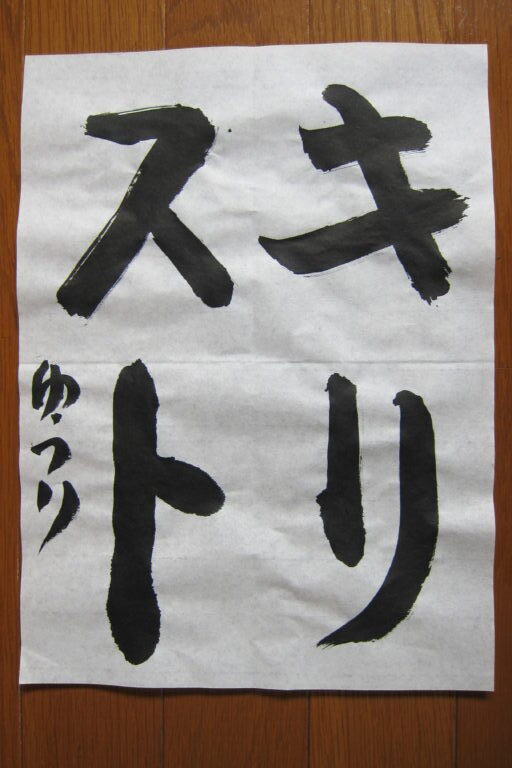 キリ
スト
ゆうり